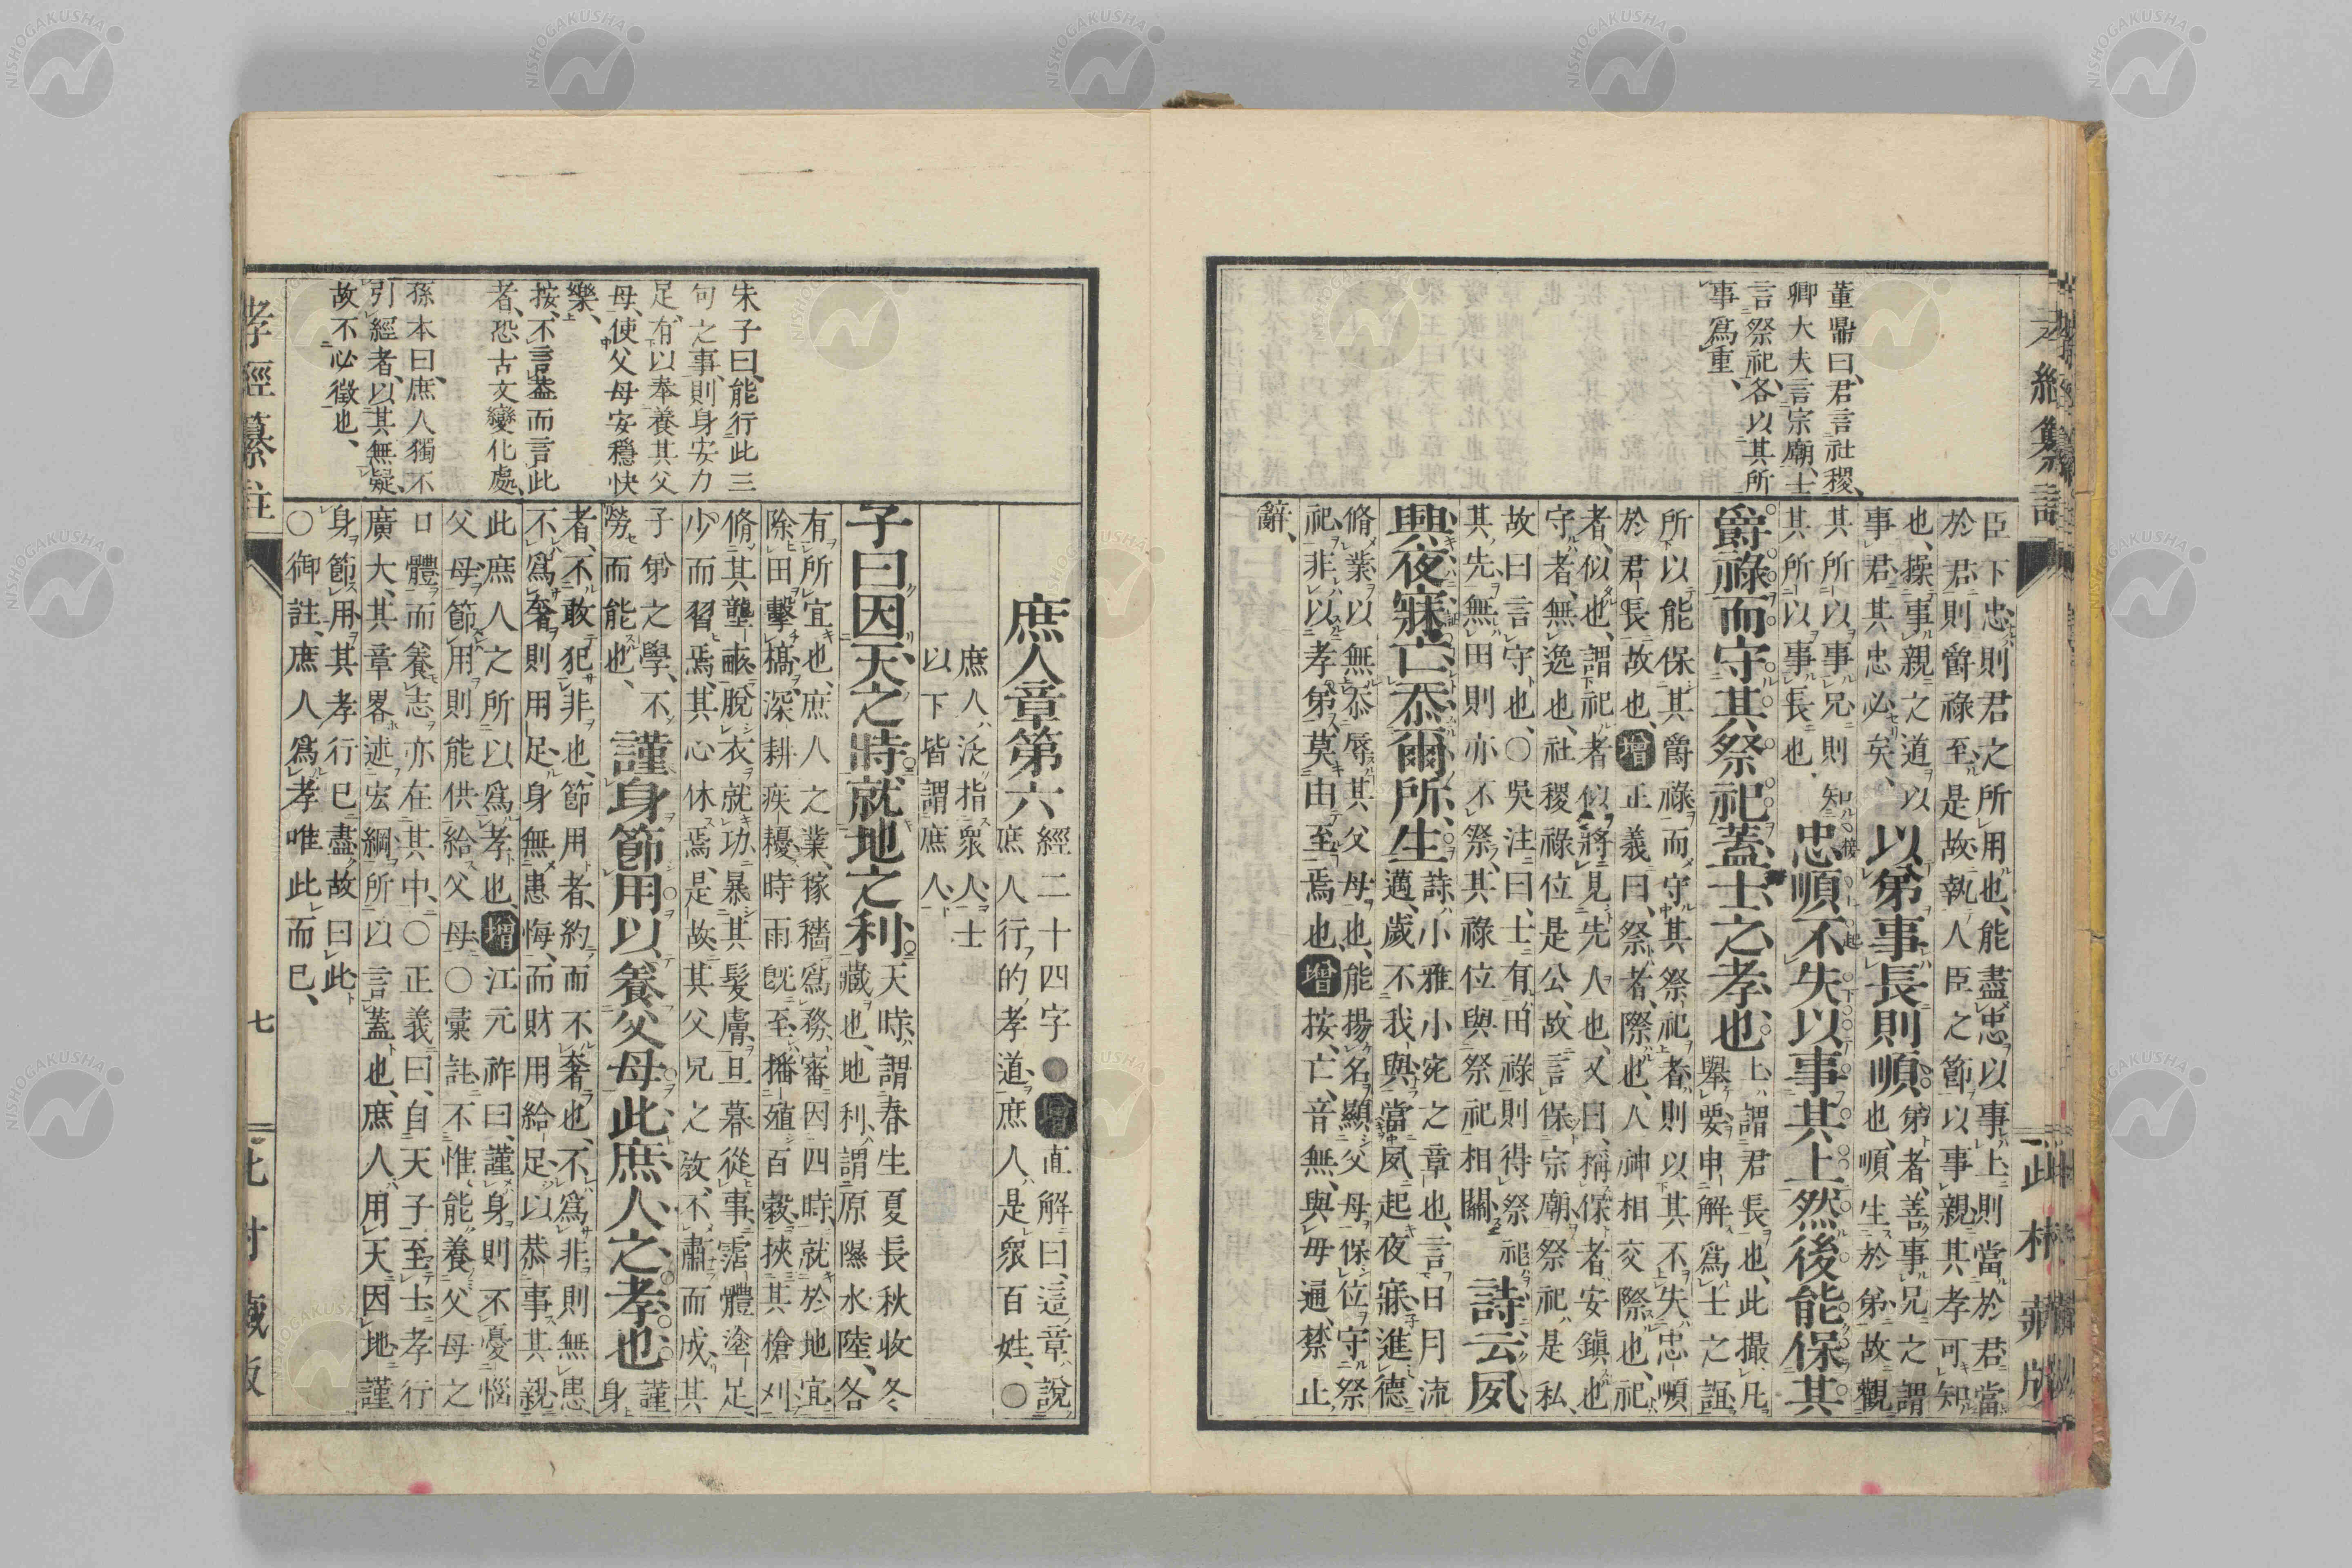 孝經纂註
此村藏版
董鼎曰、君言社稷、
卿大夫言宗廟、士
言祭祀、各以其所
事爲重、
臣下忠、則君之所用也、能盡忠以事上、則當於君、當
於君、則爵祿至、是故執人臣之節、以事親、其孝可知
也、操事親之道、以
事君、其忠必矣、
以弟事長則順、
弟者、善事兄之謂
也、順生於弟、故觀
其所以事兄、則知
其所以事長也、
忠順不失、以事其上、然後能保其
爵祿而守其祭祀、蓋士之孝也、
上、謂君長也、此撮凡
舉要、申解爲士之誼、
所以能保其爵祿、而守其祭祀者、則以其不失忠順
於君長故也、增正義曰、祭者、際也、人神相交際也、祀
者、似也、謂祀者似將見先人也、又曰、稱保者、安鎭也
守者、無逸也、社稷祿位是公、故言保、宗廟祭祀是私、
故曰言守也、○吳注曰、士有田祿、則得祭祀
其先、無田則亦不祭、其祿位與祭祀相關
詩云、夙
興夜寐、亡忝爾所生、
詩小雅小宛之章也、言日月流
邁、歲不我與、當夙起夜寐、進德
脩業、以無忝辱其父母也、能揚名顯父母、保位守祭
祀、非以孝弟、莫由至焉也、增按、亡、音無、與毋通、禁止
辭、
朱子曰、能行此三
句之事、則身安力
足、有以奉養其父
母、使父母安穩快
樂、
按、不言蓋而言此
者、恐古文變化處、
孫本曰、庶人獨不
引經者、以其無疑、
故不必徵也、
庶人章第六
經二十四字●增直解曰、這章說
庶人行的孝道、庶人是衆百姓、○
庶人泛指衆人、士
以下皆謂庶人、
子曰、因天之時、就地之利、
天時、謂春生夏長秋收冬
藏也、地利、謂原隰水陸、各
有所宜也、庶人之業、稼穡爲務、審因四時、就於地宜
除田擊槁、深耕疾耰、時雨旣至、播殖百穀、挾其槍刈
脩其壟畝、脫衣就功、暴其髮膚、旦暮從事、霑體塗足、
少而習焉、其心休焉、是故其父兄之敎、不肅而成、其
子弟之學、不
勞而能也、
謹身節用、以養父母、此庶人之孝也、
謹
身
者、不敢犯非也、節用者、約而不奢也、不爲非則無患
不爲奢則用足、身無患悔、而財用給足、以恭事其親
此庶人之所以爲孝也、增江元祚曰、謹身則不憂惱
父母、節用則能供給父母、○彙註、不惟能養父母之
口體而養志亦在其中、○正義曰、自天子至士、孝行
廣大、其章畧述宏綱、所以言蓋也、庶人、用天因地、謹
身節用、其孝行已盡、故曰此
○御註、庶人爲孝唯此而已、
孝經纂註
七
此村藏版